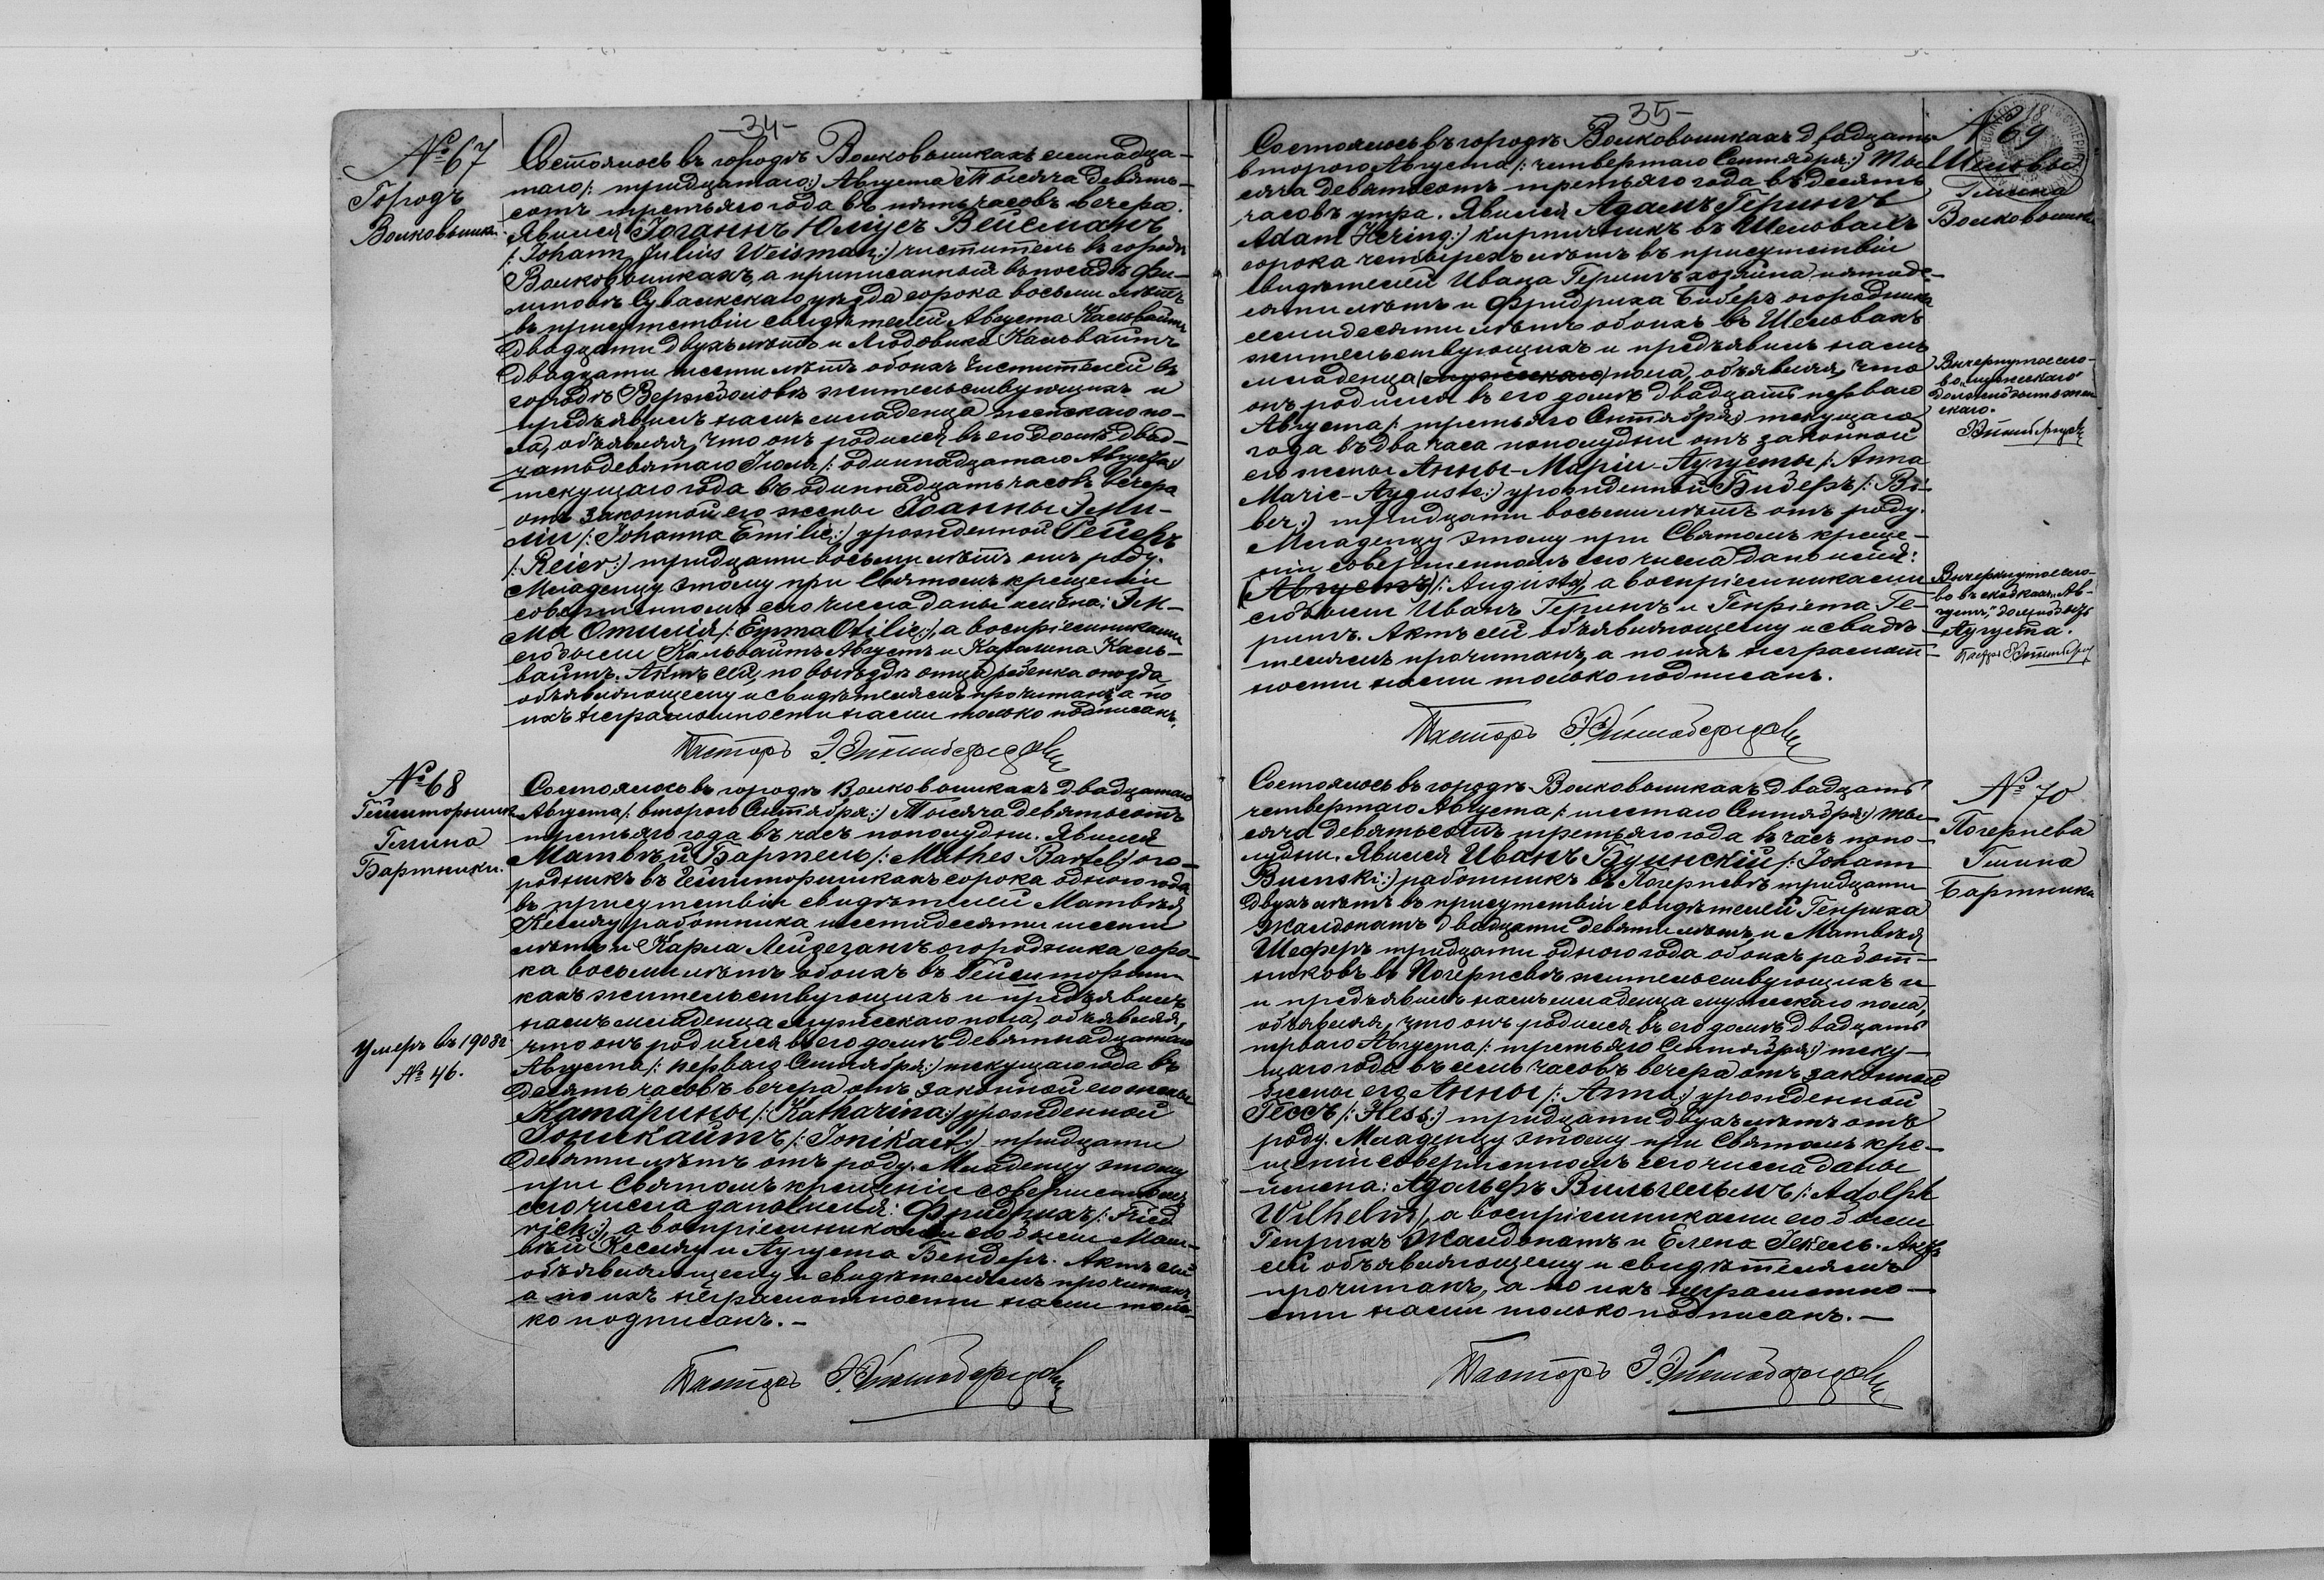 -34-
№ 67
Городъ
Волковышки.
Состоялось въ городѣ Волковышкахъ семнадца-
таго /: тридцатаго :/ Августа Тысяча девять-
сотъ третьяго года въ пять часовъ вечера.
Явился Іоганнъ Юліусъ Вейсманъ
/: Johann Julius Weisman :/ чиститель въ городѣ
Волковышкахъ, а приписанный въ посадѣ Фи-
липовѣ Сувалкскаго уѣзда сорока восьми лѣтъ
въ присутствіи свидѣтелей Августа Кальвайтъ
двадцати двухъ лѣтъ и Людовика Кальвайтъ
двадцати шести лѣтъ обоихъ чистителей въ
городѣ жительствующихъ и
предъявилъ намъ младенца женскаго по-
ла, объявляя, что онъ родился въ его домѣ двад-
цать девятаго Іюля /: одиннадцатаго Августа :/
текущаго года въ одиннадцать часовъ вечера
отъ законной его жены Іоанны Эми-
ліи /: Johanna Emilie :/ урожденной Рейеръ
/: Reier :/ тридцати восьми лѣтъ отъ роду.
Младенцу этому при Святомъ крещеніи
совершенномъ сего числа даны имена: Эм-
ма Отилія /: Emma Otilie :/, а воспріемниками
его были Кальвайтъ Августъ и Каролина Каль-
вайтъ. Актъ сей, по выѣздѣ отца ребенка отсюда
объявляющему и свидѣтелямъ прочитанъ, а по
ихъ неграмотности нами только подписанъ.
Пасторъ
№ 68
Гейшторышки
Гмина
Бартники.
Состоялось въ городѣ Волковышкахъ двадцатаго
Августа /: втораго Сентября :/ Тысяча девятьсотъ
третьяго года въ часъ пополудни. Явился
Матвѣй Бартель /: Mathes Bartel :/ ого-
родникъ въ Гейшторишкахъ сорока одного года
въ присутствіи свидѣтелей Матвѣя
работника шестидесяти шести
лѣтъ и Карла огородника соро-
ка восьми лѣтъ обоихъ въ Гейшториш-
кахъ жительствующихъ и предъявилъ
намъ младенца мужескаго пола, объявляя,
что онъ родился въ его домѣ девятнадцатаго
Августа /: перваго Сентября :/ текущаго года въ
десять часовъ вечера отъ законной его жены
Катарины /: Katharina :/ урожденной
Іоникайтъ /: Jonikaet :/ тридцати
девяти лѣтъ отъ роду. Младенцу этому
при Святомъ крещеніи совершенномъ
сего числа дано имя: Фридрихъ /: Fried-
rich :/, а воспріемниками его были Мат-
вѣй и Аугуста Бендеръ. Актъ сей
объявляющему и свидѣтелямъ прочитанъ,
а по ихъ неграмотности нами толь-
ко подписанъ. -
Умеръ въ 1908 г.
№ 46.
Пасторъ
-35-
№ 69
Шельвы
Гмина
Волковышки
Состоялось въ городѣ Волковышкахъ двадцать
втораго Августа /: четвертаго Сентября :/ Ты-
сяча девятьсотъ третьяго года въ десять
часовъ утра. Явился Адамъ Герингъ
Adam Hering :/ кирпичникъ въ Шельвахъ
сорока четырехъ лѣтъ въ присутствіи
свидѣтелей Ивана Герингъ хозяина пятиде-
сяти лѣтъ и Фридриха Биберъ огородника
семидесяти лѣтъ обоихъ въ Шельвахъ
жительствующихъ и предъявилъ намъ
младенца (мужескаго) пола, объявляя, что
онъ родился въ его домѣ двадцать перваго
Августа /: третьяго Сентября :/ текущаго
года въ два часа пополудни отъ законной
его жены Анны-Маріи-Аугусты /: Anna
Marie-Auguste :/ урожденной Бидеръ /: Bi-
ber :/ тридцати восьми лѣтъ отъ роду.
Младенцу этому при Святомъ креще-
ніи совершенномъ сего числа дано имя:
(Августъ) /: Augusta :/, а воспріемниками
его были Иванъ Герингъ и Генріета Ге-
рингъ. Актъ сей объявляющему и свидѣ-
телямъ прочитанъ, а по ихъ неграмот-
ности нами только подписанъ.
Вычеркнутое сло-
во „мужескаго"
должно быть жен-
скаго.
Вычеркнутое сло-
во въ скобкахъ „Ав-
густъ," должно быть
Аугуста.
Пасторъ
№ 70
Погернева
Гмина
Бартники
Состоялось въ городѣ Волковышкахъ двадцать
четвертаго Августа /: шестаго Сентября :/ Ты-
сяча девятьсотъ третьяго года въ часъ попо-
лудни. Явился Иванъ Буинскій /: Johann
Buinski :/ работникъ въ Погерневѣ тридцати
двухъ лѣтъ въ присутствіи свидѣтелей Генриха
Жалдокатъ двадцати девяти лѣтъ и Матвѣя
Шеферъ тридцати одного года обоихъ работ-
никовъ въ Погерневѣ жительствующихъ и
и предъявилъ намъ младенца мужескаго пола,
объявляя, что онъ родился въ его домѣ двадцать
перваго Августа /: третьяго Сентября :/ теку-
щаго года въ семь часовъ вечера отъ законной
жены его Анны /: Anna :/ урожденной
Гессъ /: Hess :/ тридцати двухъ лѣтъ отъ
роду. Младенцу этому при Святомъ кре-
щеніи совершенномъ сего числа даны
имена: Адольфъ Вильгельмъ /: Adolph
Wilhelm :/, а воспріемниками его были
Генрихъ Жалдокатъ и Елена Гекель. Актъ
сей объявляющему и свидѣтелямъ
прочитанъ, а по ихъ неграмотно-
сти нами только подписанъ. -
Пасторъ